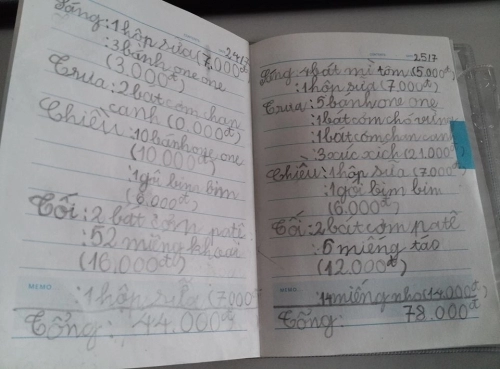 -2417
Sáng: 1 hộp sữa (7.000đ)
: 3 bánh one one
(3.000đ)
Trưa: 2 bát cơm chan
canh (0.000đ)
Chiều: 10 bánh one one
(10.000đ)
: 1 gói bim bim
(6.000đ)
Tối: 2 bát cơm patê
: 52 miếng khoai
(16.000đ)
MEMO
: 1 hộp sữa (7000đ)
Tổng: 44.000đ
-2517
Sáng: 4 bát mì tôm (5.000đ)
: 1 hộp sữa (7.000đ)
Trưa: 5 bánh one one
: 1 bát cơm chó vừng
: 1 bát cơm chan canh
: 3 xúc xích (21.000đ)
Chiều: 1 hộp sữa (7.000đ)
: 1 gói bim bim
(6.000đ)
Tối: 2 bát cơm patê
: 6 miếng táo
(12.000đ)
MEMO
: 14 miếng nho (14.000đ)
Tổng: 78.000đ